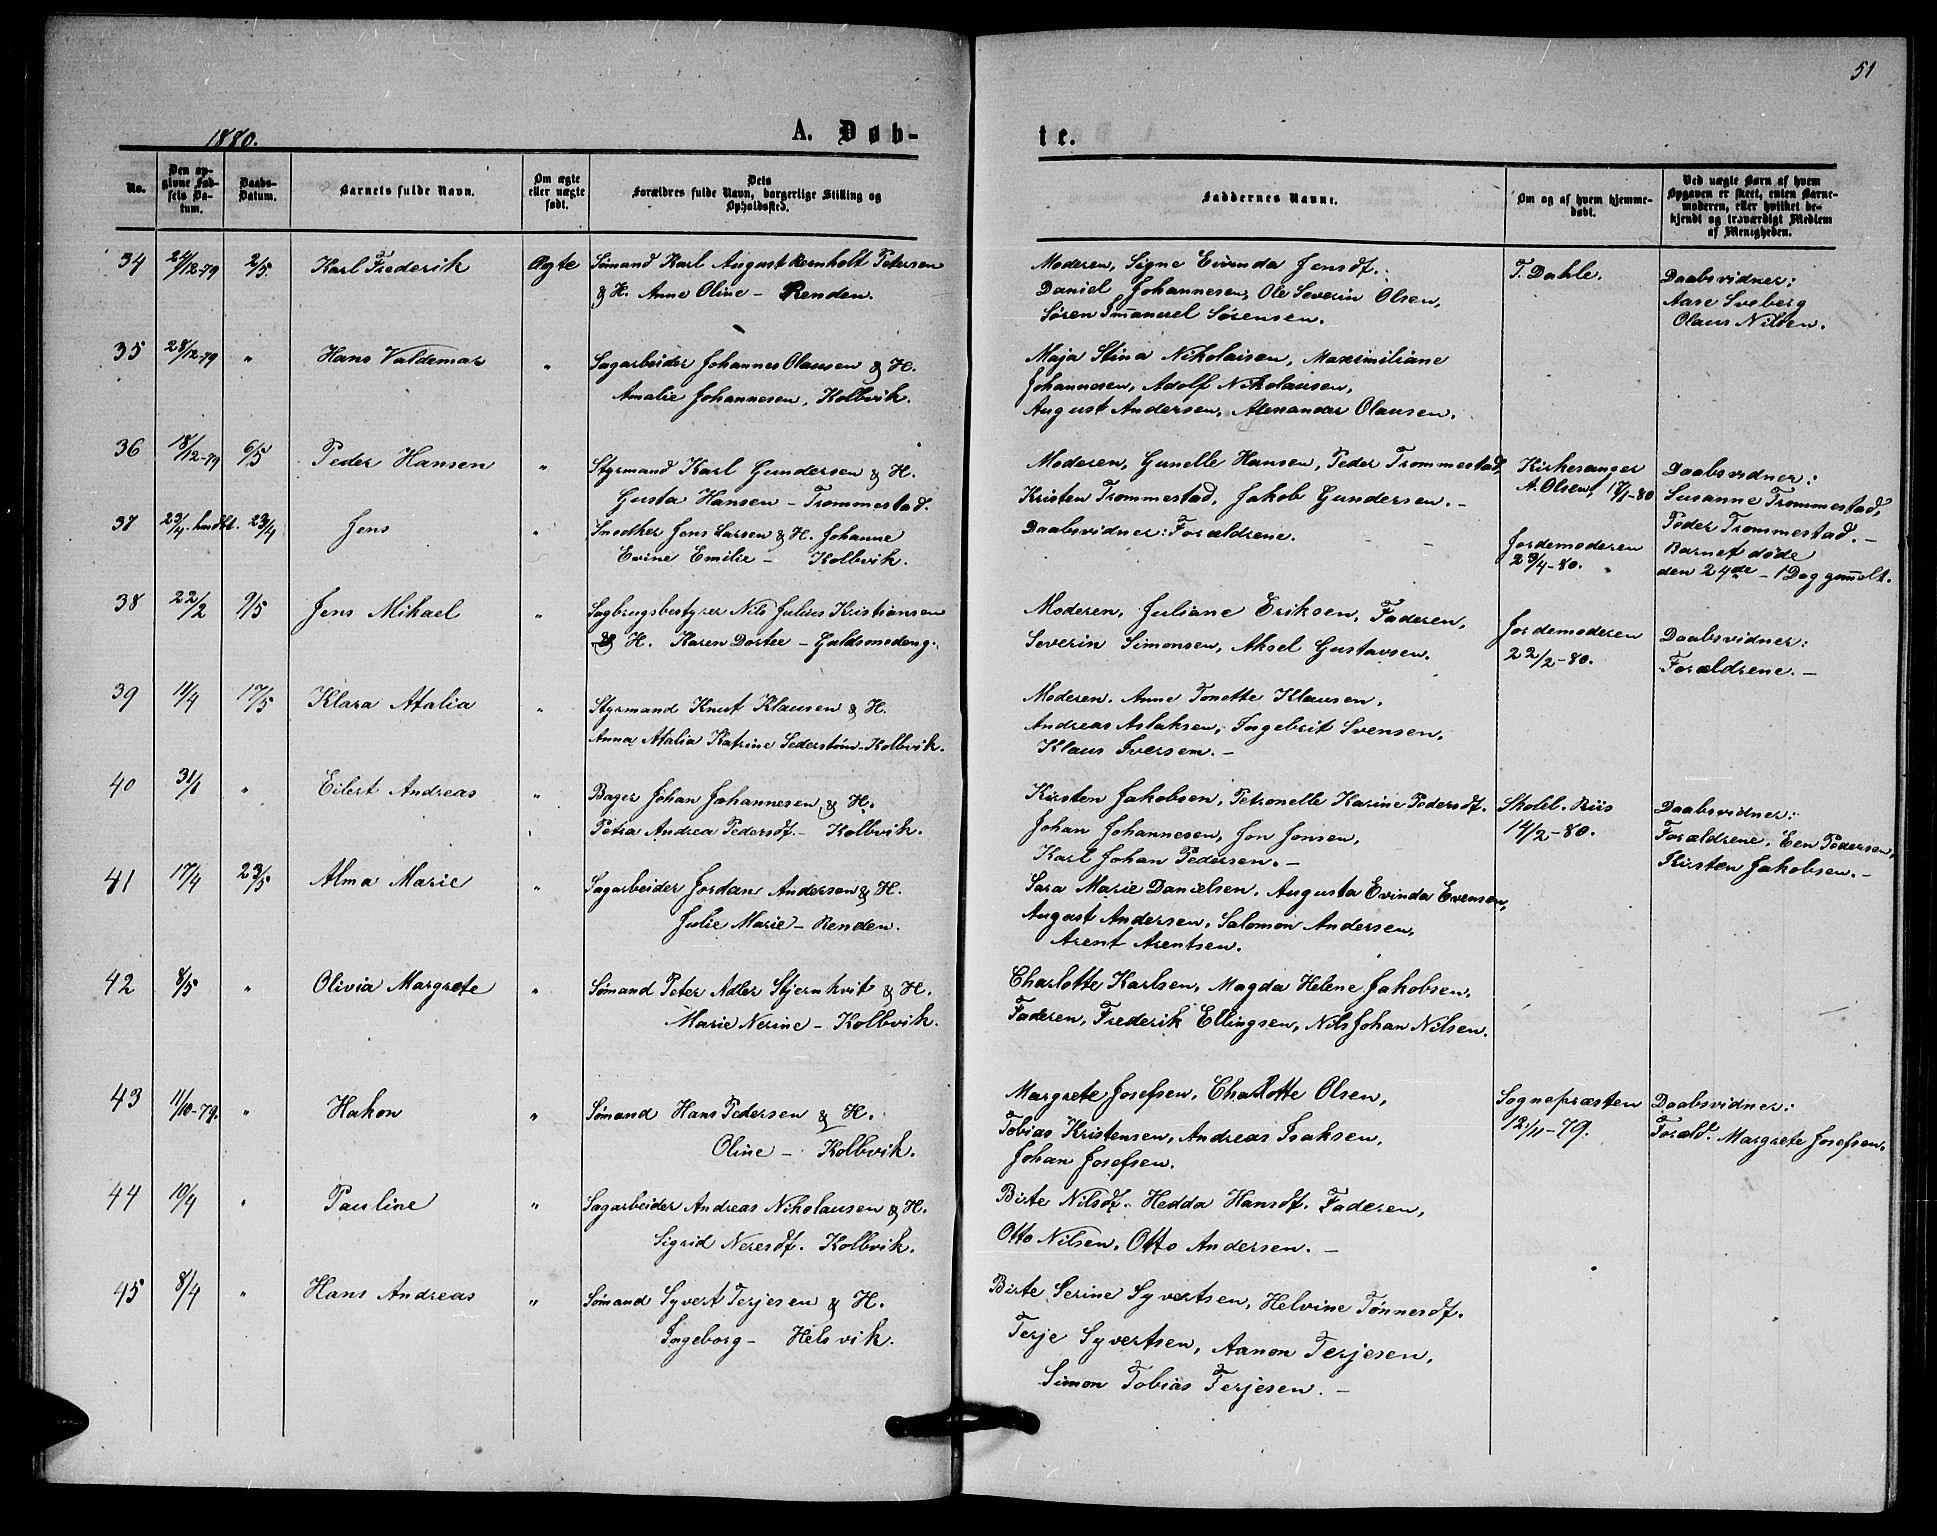 51
1880.
A. Døb-
te.
No.
Den op-
givne Fød-
sels Da-
tum.
Daabs-
Datum.
Barnets fulde Navn.
Om ægte
eller uægte
født.
Dets
Forældres fulde Navn, borgerlige Stilling og
Opholdssted.
Faddernes Navne.
Om og af hvem hjemme-
døbt.
Ved uægte Barn af hvem
Opgaven er skeet, enten Barne-
moderen, eller hvilket be-
kjendt og troværdigt Medlem
af Menigheden.
34 24/12-79 2/5. Karl Frederik Ægte Sømand Karl August Petersen
& H. Anne Oline - Renden.
Moderen, Signe Evinda Jensdt.
Daniel Johannesen, Ole Severin Olsen,
Søren Imanuel Sørensen.
T. Dahle.
Daabsvidner:
Aase Sveberg
Olaus Nilsen.
35 28/12-79 " Hans Valdemar " Sagarbeider Johannes Olausen & H.
Amalie Johannesen, Kolbvik.
Maja Stina Nikolaisen, Maximiliane
Johannesen, Adolf Nikolausen,
August Andersen, Alexander Olausen.
36 18/12-79 6/5 Peder Hansen " Styrmand Karl Gundersen & H.
Gusta Hansen - Trommestad.
Moderen, Gunelle Hansen, Peder Trommestad,
Kristen Trommestad, Jakob Gundersen. -
Kirkesanger
A. Olsen, 17/1-80
Daabsvidner:
Susanne Trommestad,
Peder Trommestad. -
37 23/4. hmdbt. 23/4 Jens " Snedker Jens Larsen & H. Johanne
Evine Emilie - Kolbvik.
Daabsvidner: Forældrene.
Jordemoderen
23/4-80.
Barnet døde
den 24de - 1 Dag gammelt.
38 22/2 9/5 Jens Mikael " Sagbrugsbestyrer Nils Julius Kristiansen
& H. Karen Dortee - Guldsmedeng.
Moderen, Juliane Eriksen, Faderen,
Severin Simonsen, Aksel Gustavsen.
Jordemoderen
22/2-80.
Daabsvidner:
Forældrene. -
39 11/4 17/5 Klara Atalia " Styrmand Knut Klausen & H.
Anna Atalia Katrine Sederstøm - Kolbvik.
Moderen. Anne Tonette Klausen,
Andreas Aslaksen, Ingebrit Svensen,
Klaus Iversen. -
40 31/1 " Eilert Andreas " Bager Johan Johannesen & H.
Petra Andrea Pedersdt. - Kolbvik.
Kirsten Jakobsen, Petronelle Karine Pedersdt.
Johan Johannesen, Jon Jonsen,
Karl Johan Pedersen. -
Skolel. Riis
14/2-80.
Daabsvidner:
Forældrene, Een Pedersen,
Kirsten Jakobsen. -
41 17/4 23/5 Alma Marie " Sagarbeider Jordan Andersen & H.
Julie Marie - Renden.
Sara Marie Danielsen, Augusta Evinda Evensen,
August Andersen, Salomon Andersen,
Arent Arentsen.
42 8/5 " Olivia Margrete " Sømand Peter Adler Stjernkvit & H.
Marie Nerine - Kolbvik.
Charlotte Karlsen, Magda Helene Jakobsen,
Faderen, Frederik Ellingsen, Nils Johan Nilsen.
43 11/10-79. " Hakon " Sømand Hans Pedersen & H.
Oline - Kolbvik.
Margrete Josefsen, Charlotte Olsen,
Tobias Kristensen, Andreas Isaksen,
Johan Josefsen.
Sognepræsten
12/11-79.
Daabsvidner:
Foræld. Margrete Josefsen.
44 10/4 " Pauline " Sagarbeider Andreas Nikolausen & H.
Sigrid Neresdt. Kolbvik.
Birte Nilsdt. Hedda Hansdt. Faderen,
Otto Nilsen, Otto Andersen. -
45 8/4 " Hans Andreas " Sømand Syvert Terjesen & H.
Ingeborg - Helsvik.
Birte Serine Syvertsen, Helvine Tønnesdt.
Terje Syvertsen, Aanon Terjesen,
Simon Tobias Terjesen. -